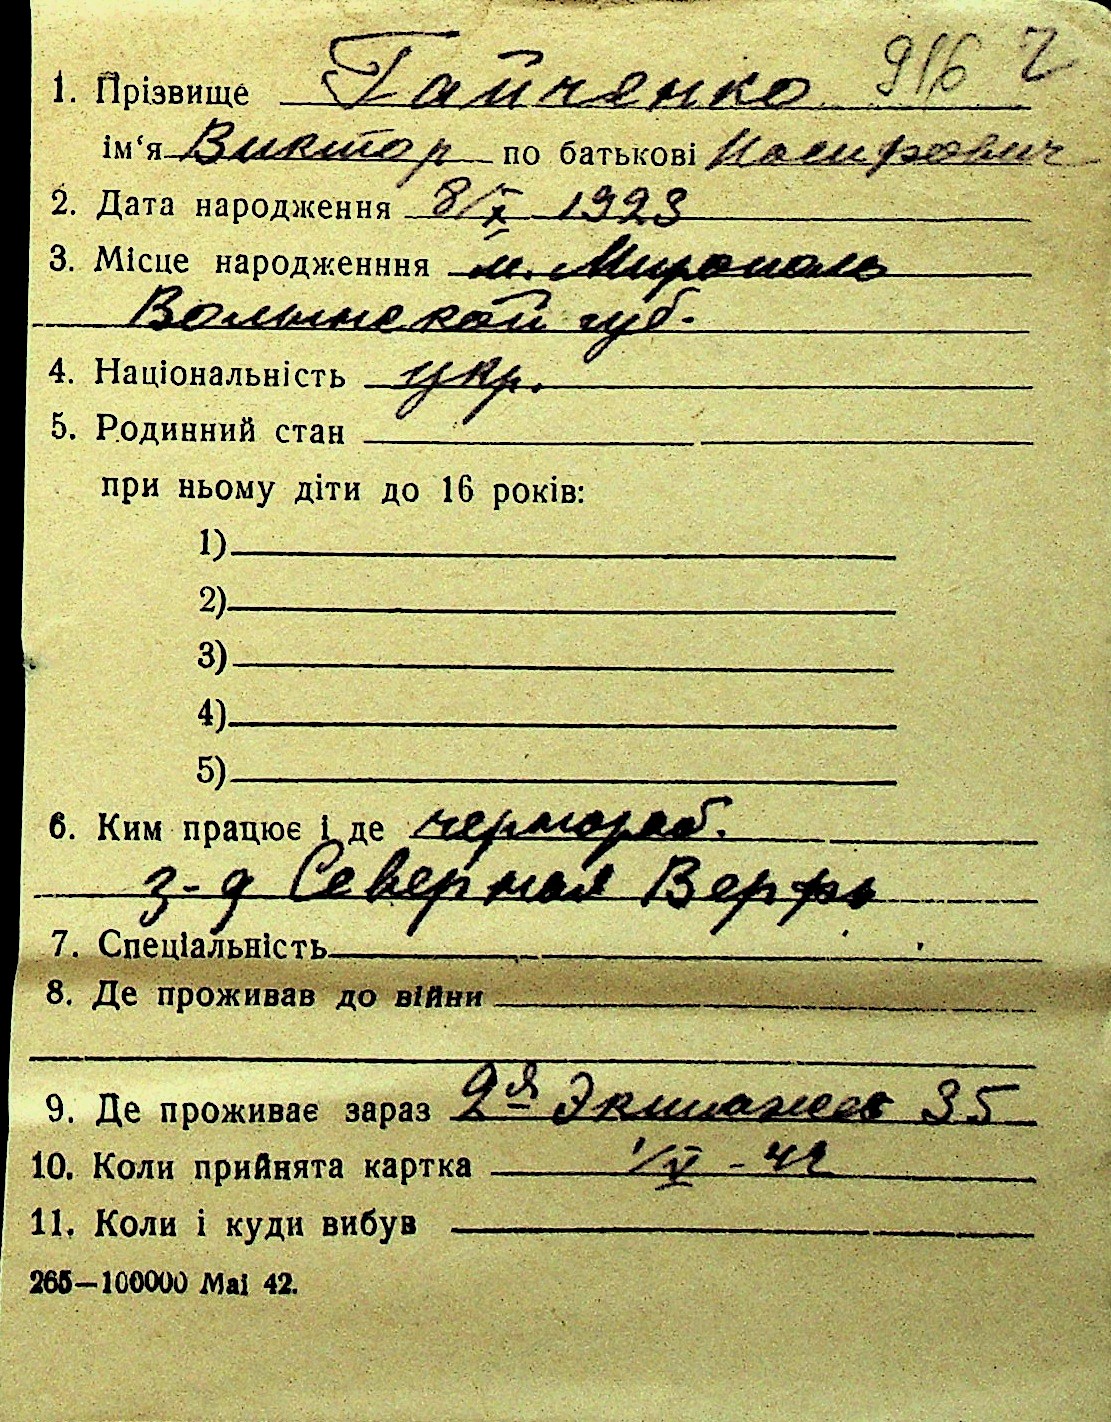 916 г
1. Прізвище Гайченко
ім‘я Виктор по батькові
2. Дата народження 8/X 1923
3. Місце народженння м. Мирополь
Волынской губ.
4. Національність укр.
5. Родинний стан
при ньому діти до 16 років:
1)
2)
3)
4)
5)
6. Ким працює і де чернораб.
з-д Северная Верфь
7. Спеціальність
8. Де проживав до війни
9. Де проживає зараз 2я Экипажес 35
10. Коли прийнята картка 1/V - 42
11. Коли і куди вибув
265—100000 Маі 42.